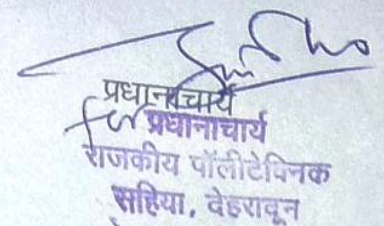 प्रधानाचार्य
for प्रधानाचार्य
राजकीय पॉलीटेक्निक
सहिया, देहरादून